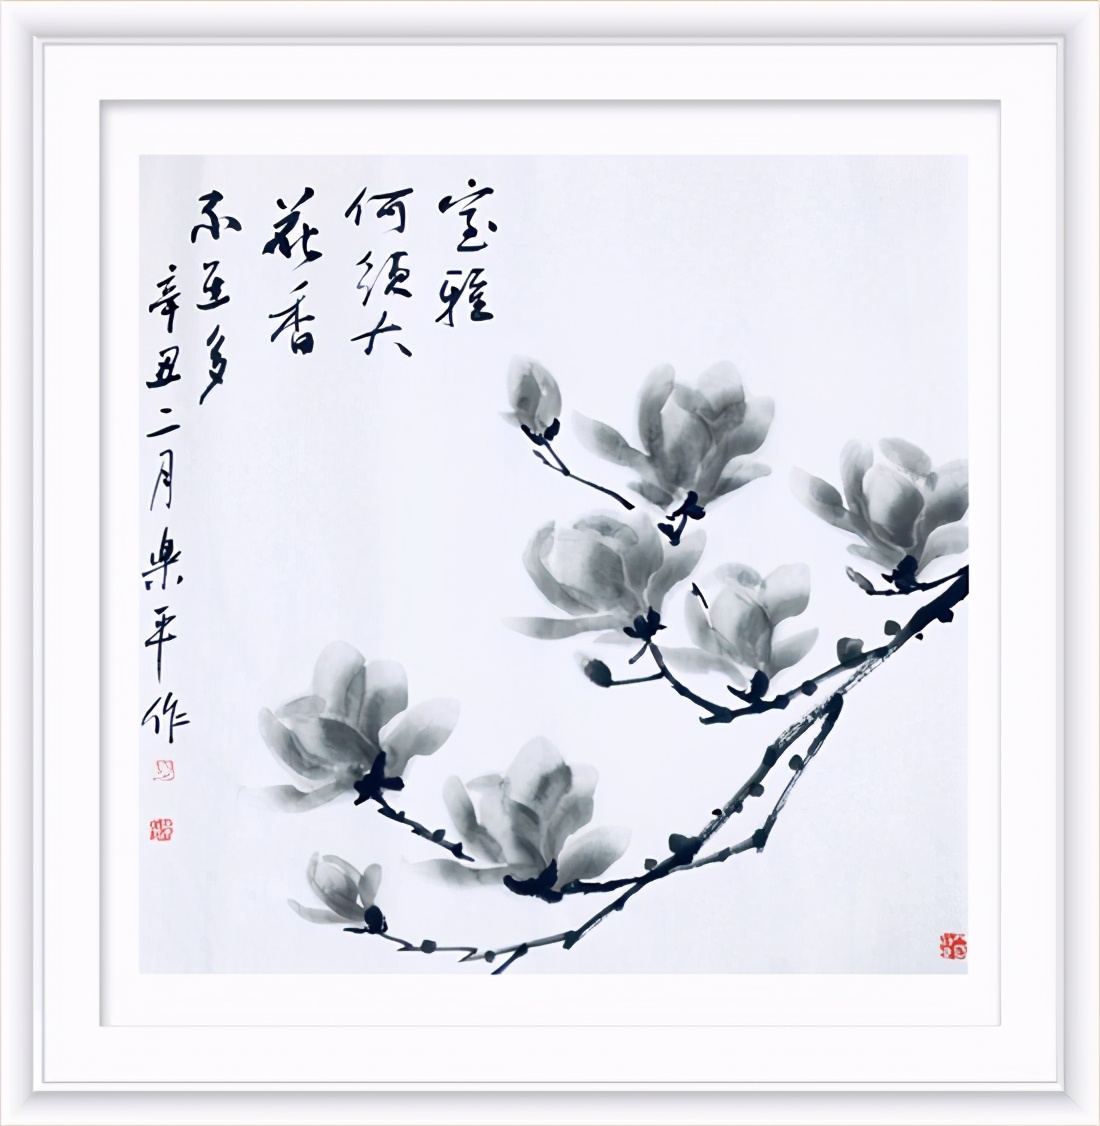 室雅
何須大
花香
不在多
辛丑二月樂平作